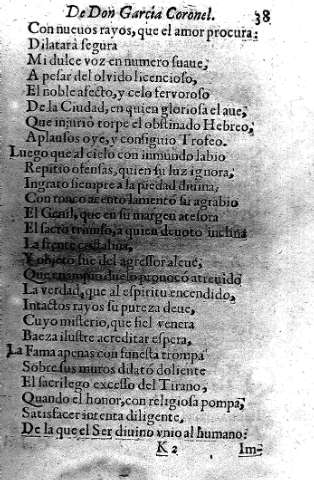 De Don Garcia Coronel.
38
Con nueuos rayos, que el amor procura:
Dilatarà segura
Mi dulce voz en numero suaue,
A pesar del oluido licencioso,
El noble afecto, y celo feruoroso
De la Ciudad, en quien gloriosa el aue,
Que injuriò torpe el obstinado Hebreo,
Aplausos oye, y consiguio Trofeo.
Luego que al cielo con inmundo labio
Repitio ofensas, quien su luz ignora,
Ingrato siempre a la piedad diuina,
Con ronco acento lamentò su agrabio
El Genil, que en su margen atesora
El sacro triunfo, a quien deuoto inclina
La frente
Y objeto fue del agressor aleue,
Que duelo prouocò atreuido
La verdad, que al espiritu encendido,
Intactos rayos su pureza deue,
Cuyo misterio, que fiel venera
Baeza ilustre acreditar espera,
La Fama apenas con funesta trompa
Sobre sus muros dilatò doliente
El sacrilego excesso del Tirano,
Quando el honor, con religiosa pompa,
Satisfacer intenta diligente,
De la que el Ser diuino vnio al humano:
K 2
Im-